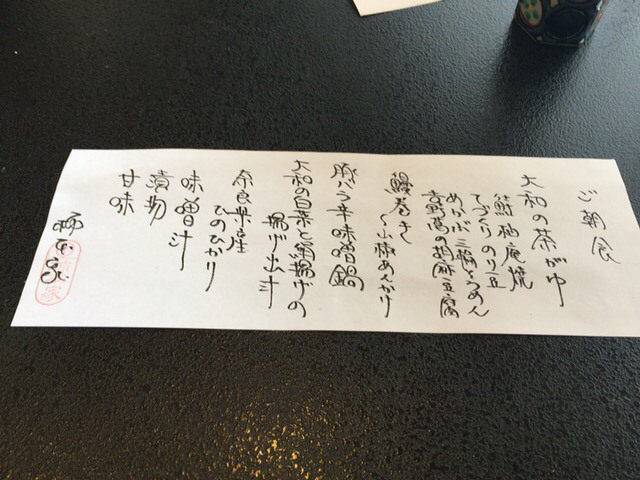 ご朝食
大和の茶がゆ
鯖柚庵焼
てづくりのり豆
めかぶ三輪そうめん
吉野の胡麻豆腐
鰻巻き
山椒あんかけ
豚バラ辛味噌鍋
大和の白菜と薄揚げの
揚げ出汁
奈良県産
ひのひかり
味噌汁
漬物
甘味